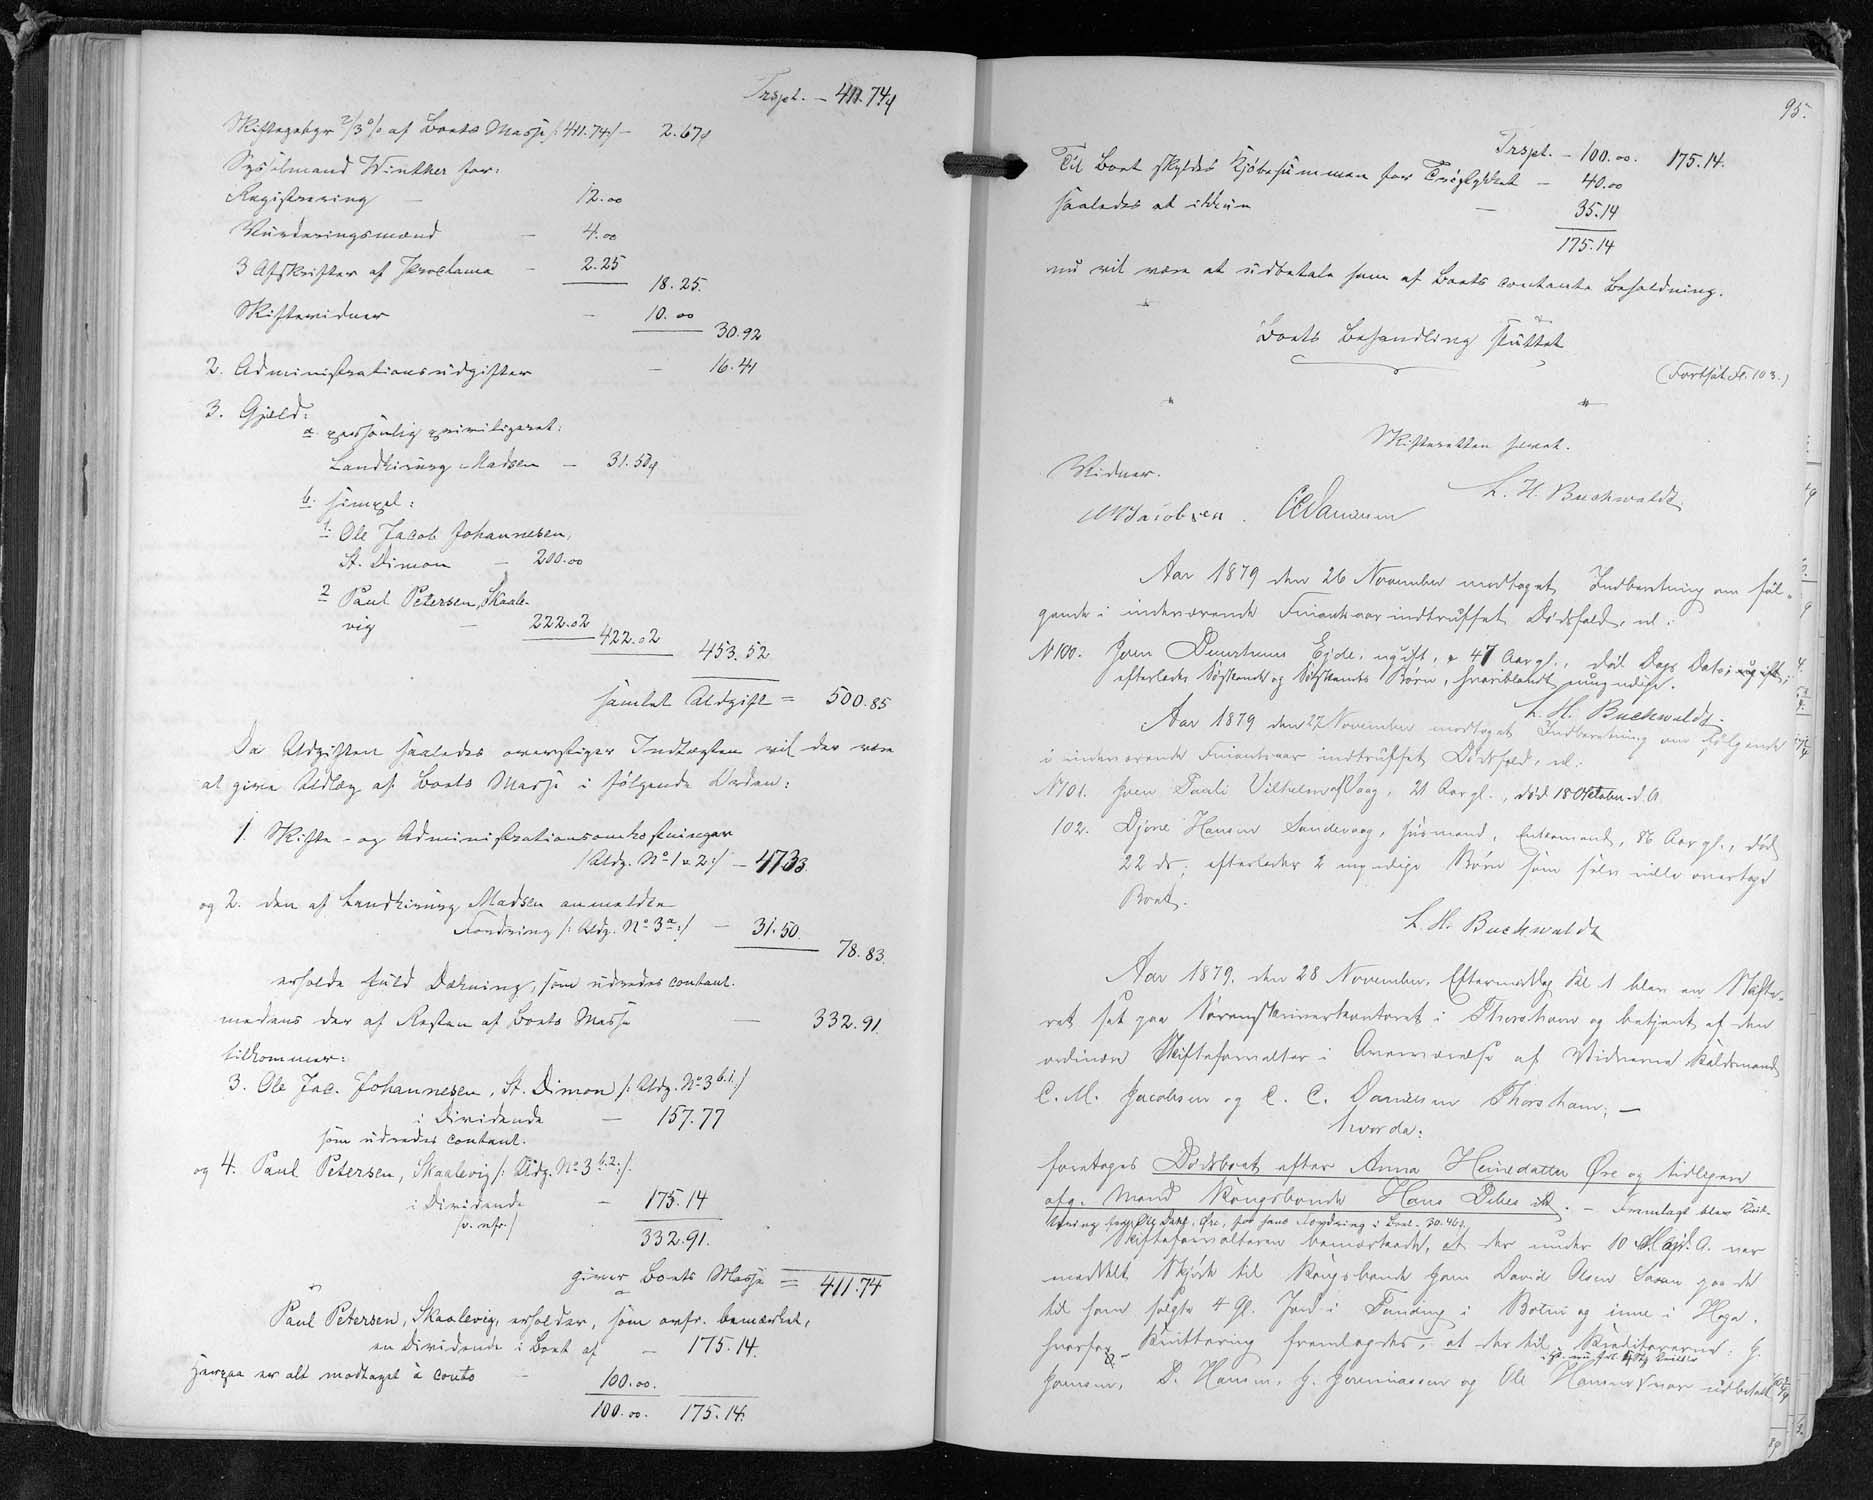 Trspt. – 411.74
Skiftegebyr 2/3 % af Boets Masse /: 411.74 :/ – 2.67
Sysselmand Winther for:
Registrering – 12.00
Vurderingsmænd – 4.00
3 Afskrifter af Proclama – 2.25
18.25.
Skiftevidner – 10.00
30.92
2. Administrationsudgifter – 16.41
3. Gjæld:
a. personlig priviligeret:
Landkirurg Madsen – 31.50
b. simpel:
1. Ole Jacob Johannesen,
St. Dimon – 200.00
2 Paul Petersen, Skaale-
vig – 222.02
422.02
453.52
samlet Udgift = 500.85
Da Udgiften saaledes overstiger Indtægten vil der være
at give Udlæg af Boets Masse i følgende Orden:
1. Skifte- og Administrationsomkostninger
/: Udg. No 1 & 2 :/ – 47.33
og 2. den af Landkirurg Madsen anmeldte
Fordring /: Udg. No 3 a :/ – 31.50.
78.83.
erholde fuld Dækning, som udredes contant.
medens der af Resten af Boets Masse – 332.91.
tilkommer:
3. Ole Jac. Johannesen, St. Dimon /: Udg. No 3 b.1 :/
i Dividende – 157.77
som udredes contant.
og 4. Paul Petersen, Skaalevig /: Udg. No 3 b.2 :/.
i Dividende – 175.14
/v. nfr./
332.91.
giver Boets Masse = 411.74
Paul Petersen, Skaalevig, erholder, som ovfr. bemærket,
en Dividende i Boet af – 175.14.
Herpaa er alt modtaget à conto – 100.00.
100.00. 175.14.
95.
Trspt. – 100.00. 175.14.
Til Boet skyldes Kjøbesummen for – 40.00
saaledes at ikkun – 35.14
175.14
nu vil være at udbetale ham af Boets contante Beholdning.
Boets Behandling sluttet
(Forts. Fol. 103.)
Skifteretten hævet.
Vidner.
L. H. Buchwaldt.
CMJacobsen. CCDanielsen
Aar 1879 den 26 November modtoget Indberetning om føl-
gende i indeværende Finantsaar indtruffet Dødsfald, nl:
No 100. Joen Eyde, ugift, 47 Aar gl., død Dags Dato;
efterlader Søskende og Søskendes Børn, hvoriblandt umyndige.
L. H. Buchwaldt.
Aar 1879 den 27 November modtoget Indberetning om følgende
i indeværende Finantsaar indtruffet Dødsfald, nl:
No 101. Joen Pauli Vilhelm Vaag, 21 Aar gl., død 18 October d. A.
102. Djone Hansen Sandevaag, Huusmand, Enkemand, 86 Aar gl., død
22 ds; efterlader 2 myndige Børn som selv ville overtage
Boet.
L. H. Buchwaldt
Aar 1879, den 28 November, Eftermiddag Kl. 1 blev en Skifte-
ret sat paa Sorenskriverkontoret i Thorshavn og betjent af den
ordinære Skifteforvalter i Overværelse af Vidnerne
C. M. Jacobsen og C. C. Danielsen Thorshavn; –
hvorda:
foretoges Dødsboet efter Anna Heinedatter Øre og tidligere
afg. Mand Kongsbonde Hans ibd. – Fremlagt blev Kvit-
tering fra Ole Øre, for hans Fordring i Boet – 30.46
Skifteforvalteren bemærkede, at der under 10 Maj d. A. var
meddelt Skjøde til Kongsbonde Joen David Olsen paa de
til ham solgte 4 Gl. Jord i Funding i Botni og inne i Haga,
hvorfor Kvittering fremlagdes; at der til Kreditorerne: J.
Joensen, D. Hansen, J. Joennassen og Ole Hansen var udbetalt